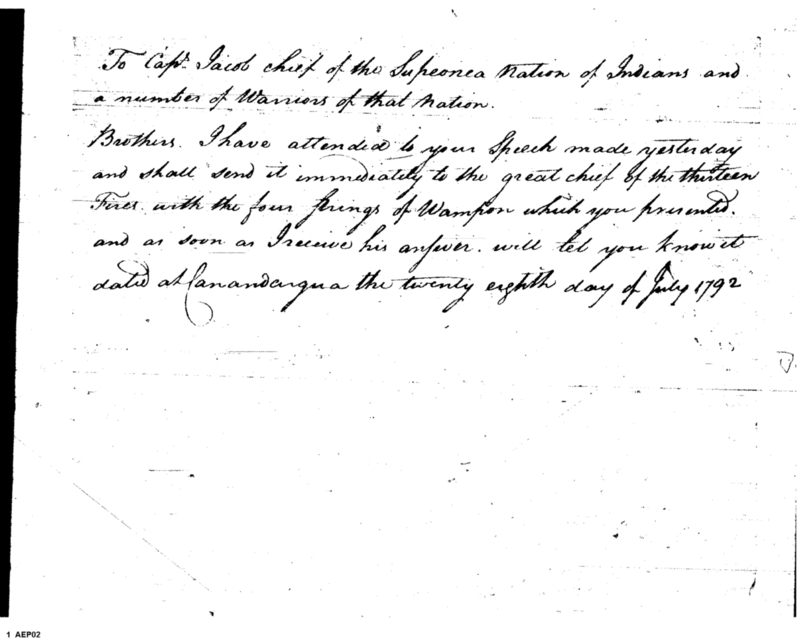 To Capt. Jacob chief of the Supeonea Nation of Indians and
a number of Warriors of that Nation.
Brothers. I have attended to your Speech made yesterday
and shall send it immediately to the great chief of the thirteen
Fires. with the four strings of Wampon which you presented.
and as soon as I receive his answer. will let you know it
dated at Canandarqua the twenty eighth day of July 1792
1 AEP02